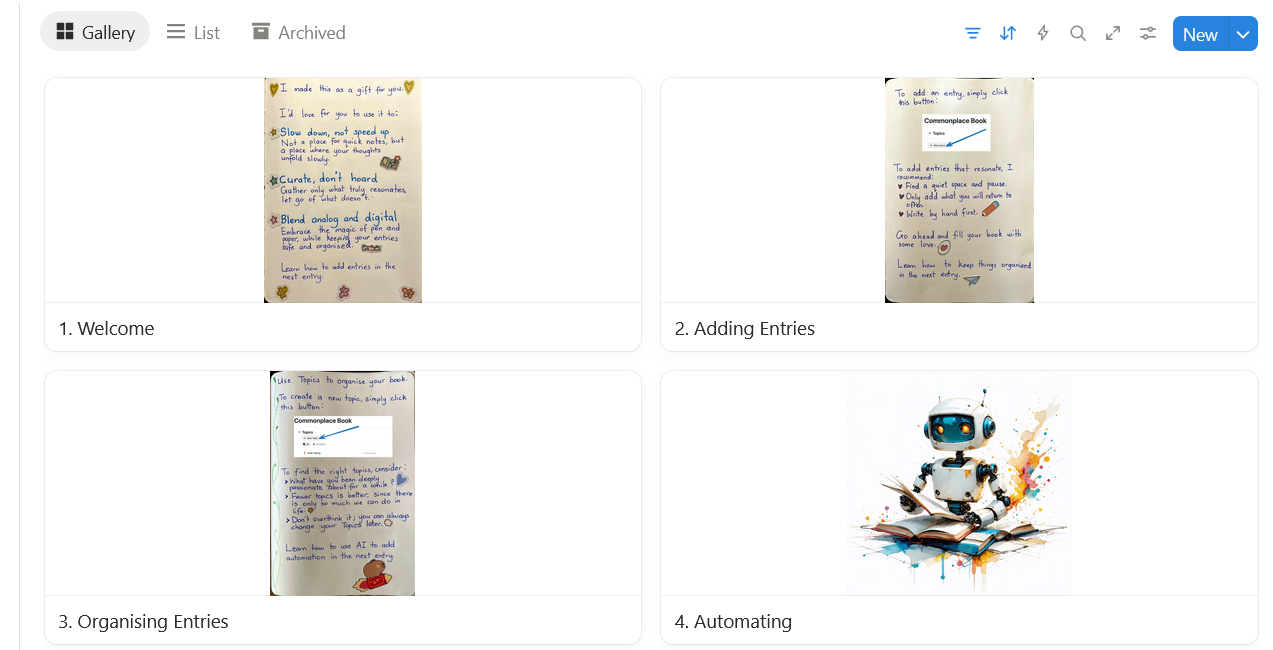 Gallery
List
Archived
New
I made this as a gift for you.
I'd love for you to use it to:
Slow down, not speed up
Not a place for quick notes, but
a place where your thoughts
unfold slowly.
Curate, don't hoard
Gather only what truly resonates,
let go of what doesn't.
Blend analog and digital
Embrace the magic of pen and
paper, while keeping your entries
safe and organised.
Learn how to add entries in the
next entry.
1. Welcome
To add an entry, simply click
this button:
Commonplace Book
Topics
New Entry
To add entries that resonate, I
recommend:
Find a quiet space and pause.
Only add what you will return to
often.
Write by hand first.
Go ahead and fill your book with
some love.
Learn how to keep things organised
in the next entry.
2. Adding Entries
Use Topics to organise your book.
To create a new topic, simply click
this button:
Commonplace Book
Topics
New Topic
To find the right topics, consider:
What have you been deeply
passionate about for a while?
Fewer topics is better, since there
is only so much we can do in
life.
Don't overthink it; you can always
change your Topics later.
Learn how to use AI to add
automation in the next entry.
3. Organising Entries
4. Automating